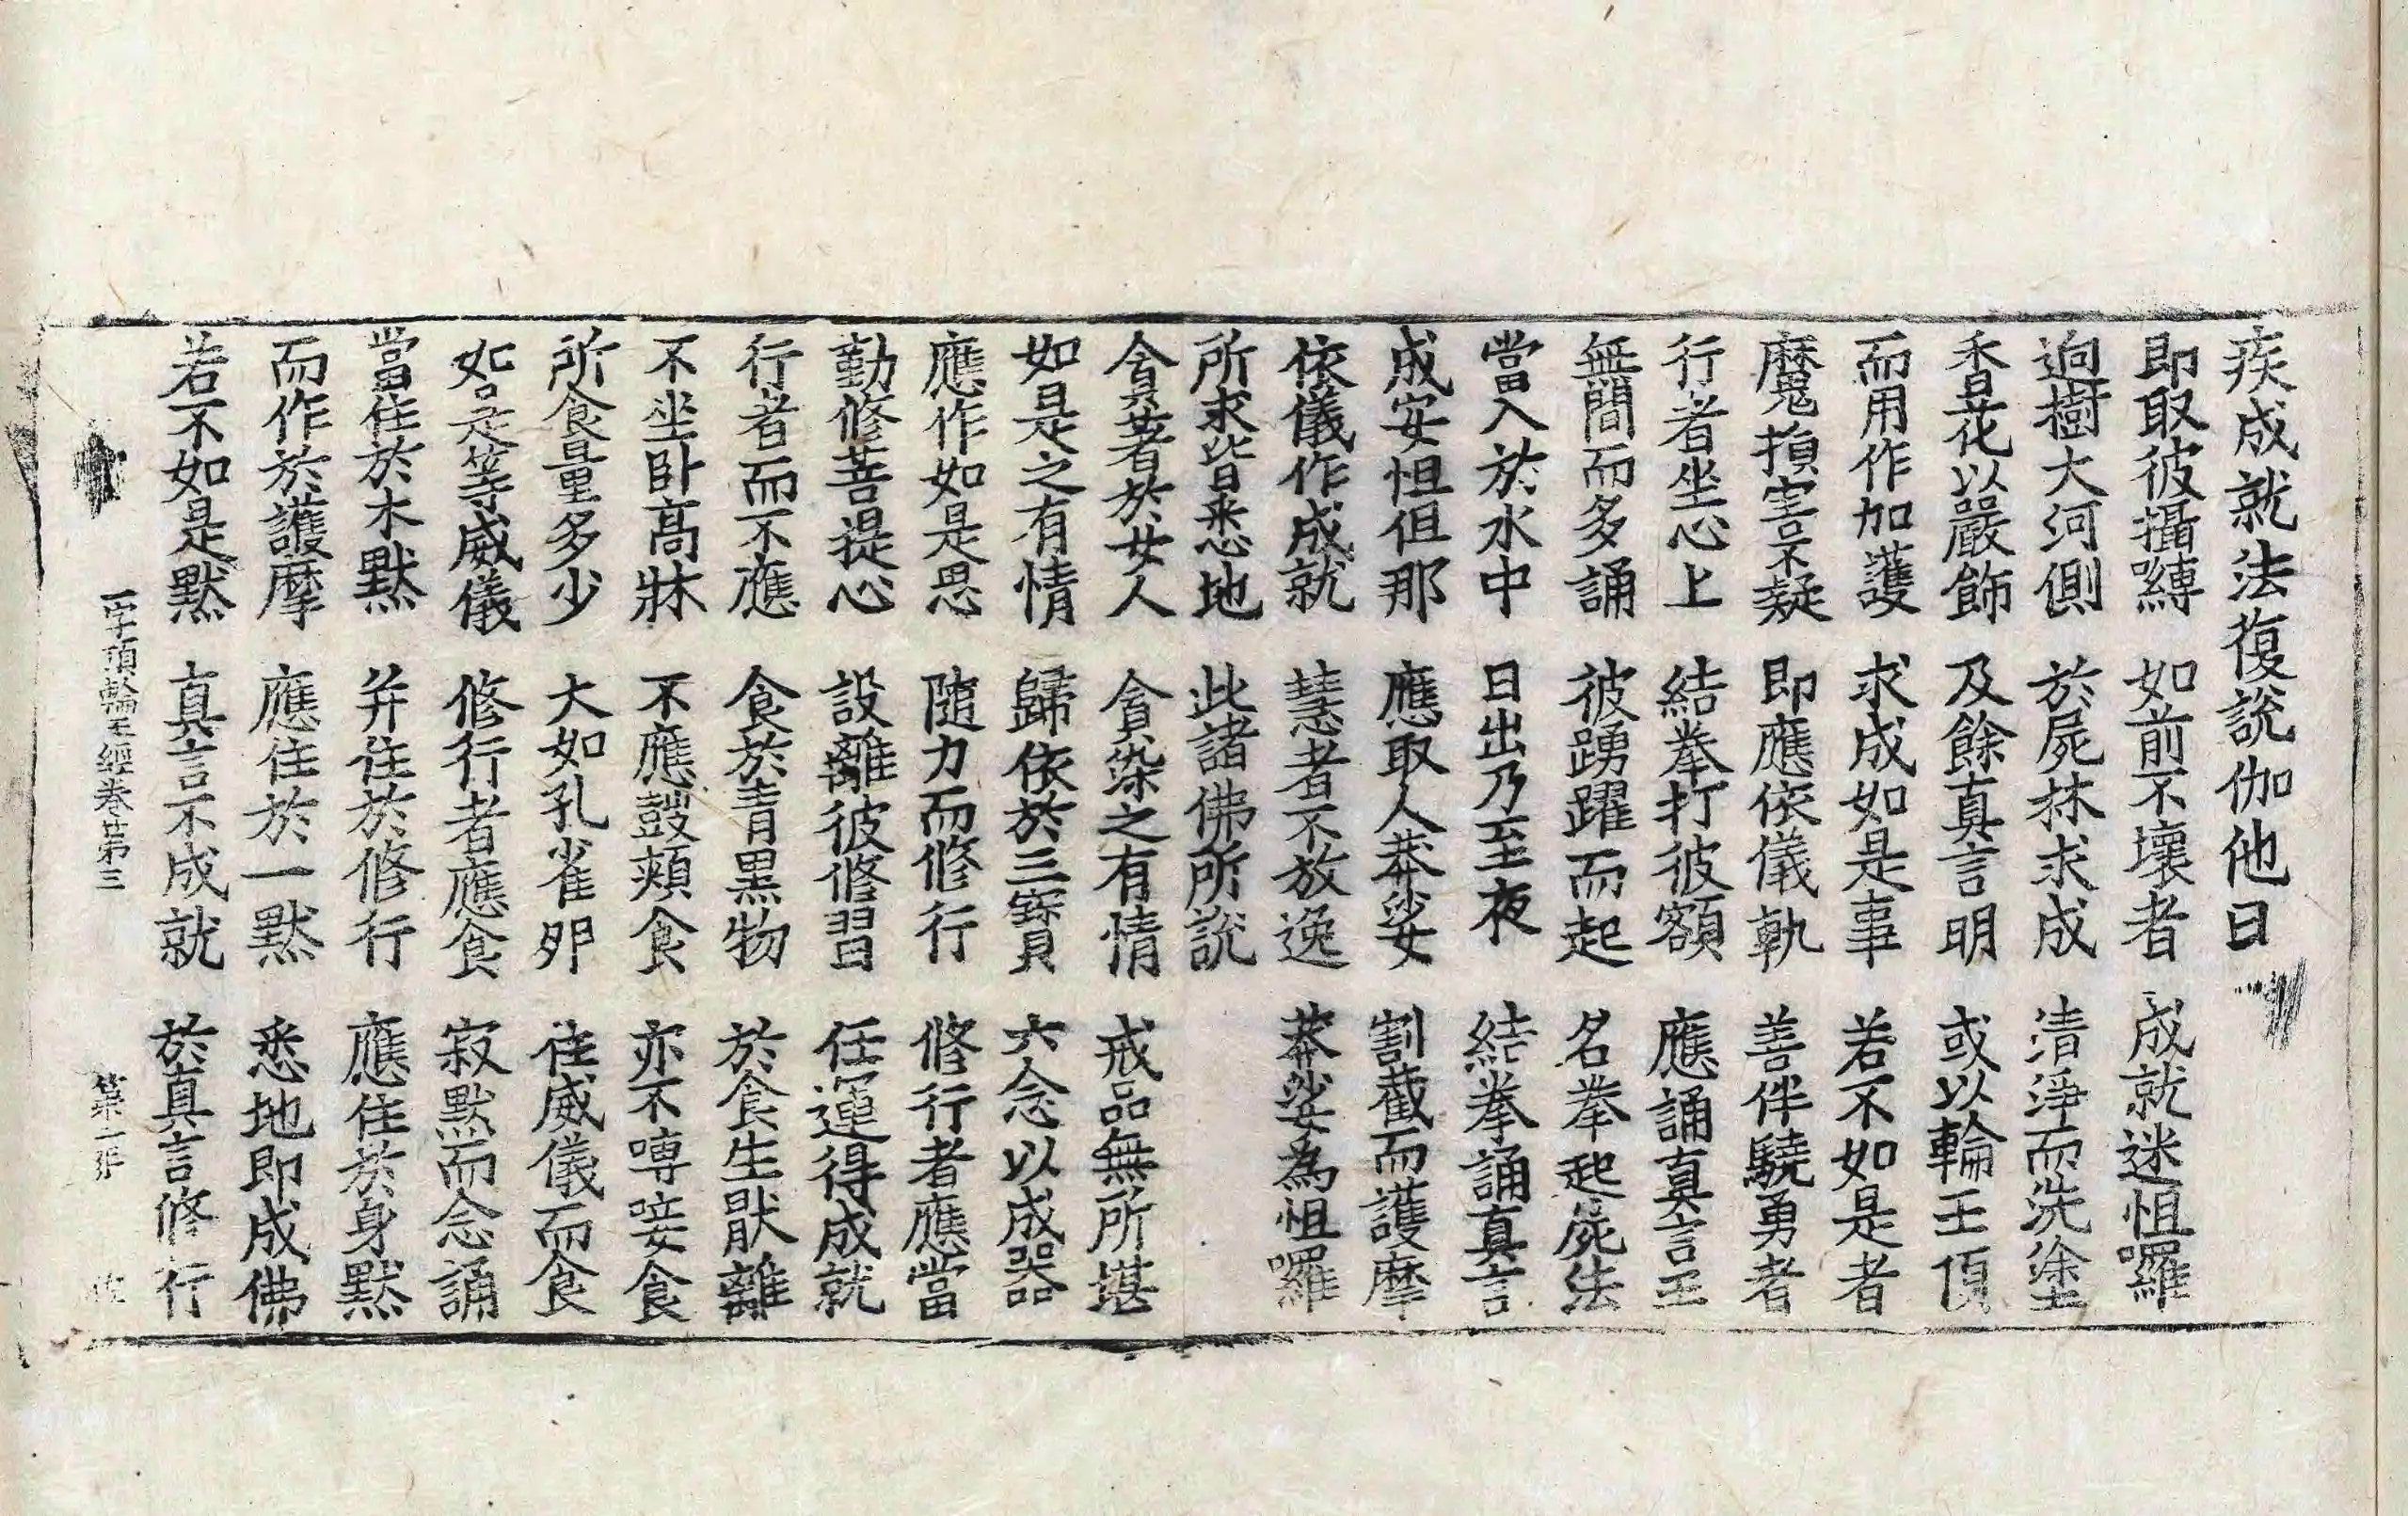 疾成就法復說伽他曰
即取彼攝嚩　如前不壞者　成就迷怛囉
逈樹大河側　於屍林求成　清淨而洗塗
香花以嚴飾　及餘真言明　或以輪王頂
而用作加護　求成如是事　若不如是者
魔損害不疑　即應依儀軌　善伴驍勇者
行者坐心上　結拳打彼額　應誦真言王
無間而多誦　彼踴躍而起　名拳起屍法
當入於水中　日出乃至夜　結拳誦真言
成安怛但那　應取人莽娑　割截而護摩
依儀作成就　慧者不放逸　莽娑為怛囉
所求皆悉地　此諸佛所說
貪著於女人　貪染之有情　戒品無所堪
如是之有情　歸依於三寶　六念以成器
應作如是思　隨力而修行　修行者應當
勤修菩提心　設離彼修習　任運得成就
行者而不應　食於青黑物　於食生猒離
不坐卧高牀　不應鼓頰食　亦不㗘唼食
所食量多少　大如孔雀卵　住威儀而食
如是等威儀　修行者應食　寂默而念誦
當住於木默　并住於修行　應住於身默
而作於護摩　應住於一默　悉地即成佛
若不如是默　真言不成就　於真言修行
一字頂輪王經卷第三　第二張